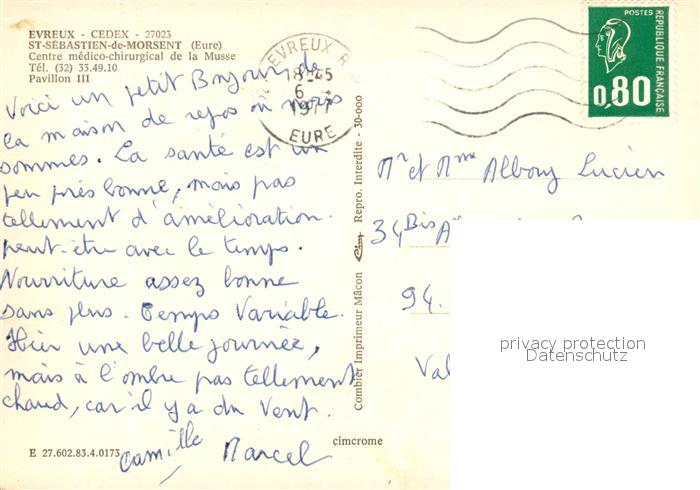 EVREUX - CEDEX - 27023
ST-SÉBASTIEN-de-MORSENT (Eure)
Centre médico-chirurgical de la Musse
Tél. (32) 33.49.10
Pavillon III
Voici un petit Bonjour de
la maison de repos où nous
sommes. La santé est un
peu près bonne, mais pas
tellement d'amélioration.
peut-être avec le temps.
Nourriture assez bonne
sans plus. Temps Variable.
Hier une belle journée,
mais à l'ombre pas tellement
chaud, car il y a du vent.
Camille Marcel
E 27.602.83.4.0173
cimcrome
Combier Imprimeur Mâcon Cim Repro. Interdite - 30-000
EVREUX R.P.
18-45
6
1977
EURE
POSTES
RÉPUBLIQUE FRANÇAISE
0,80
Mr et Mme Albony Lucien
34 Bis
94.
Val
privacy protection
Datenschutz